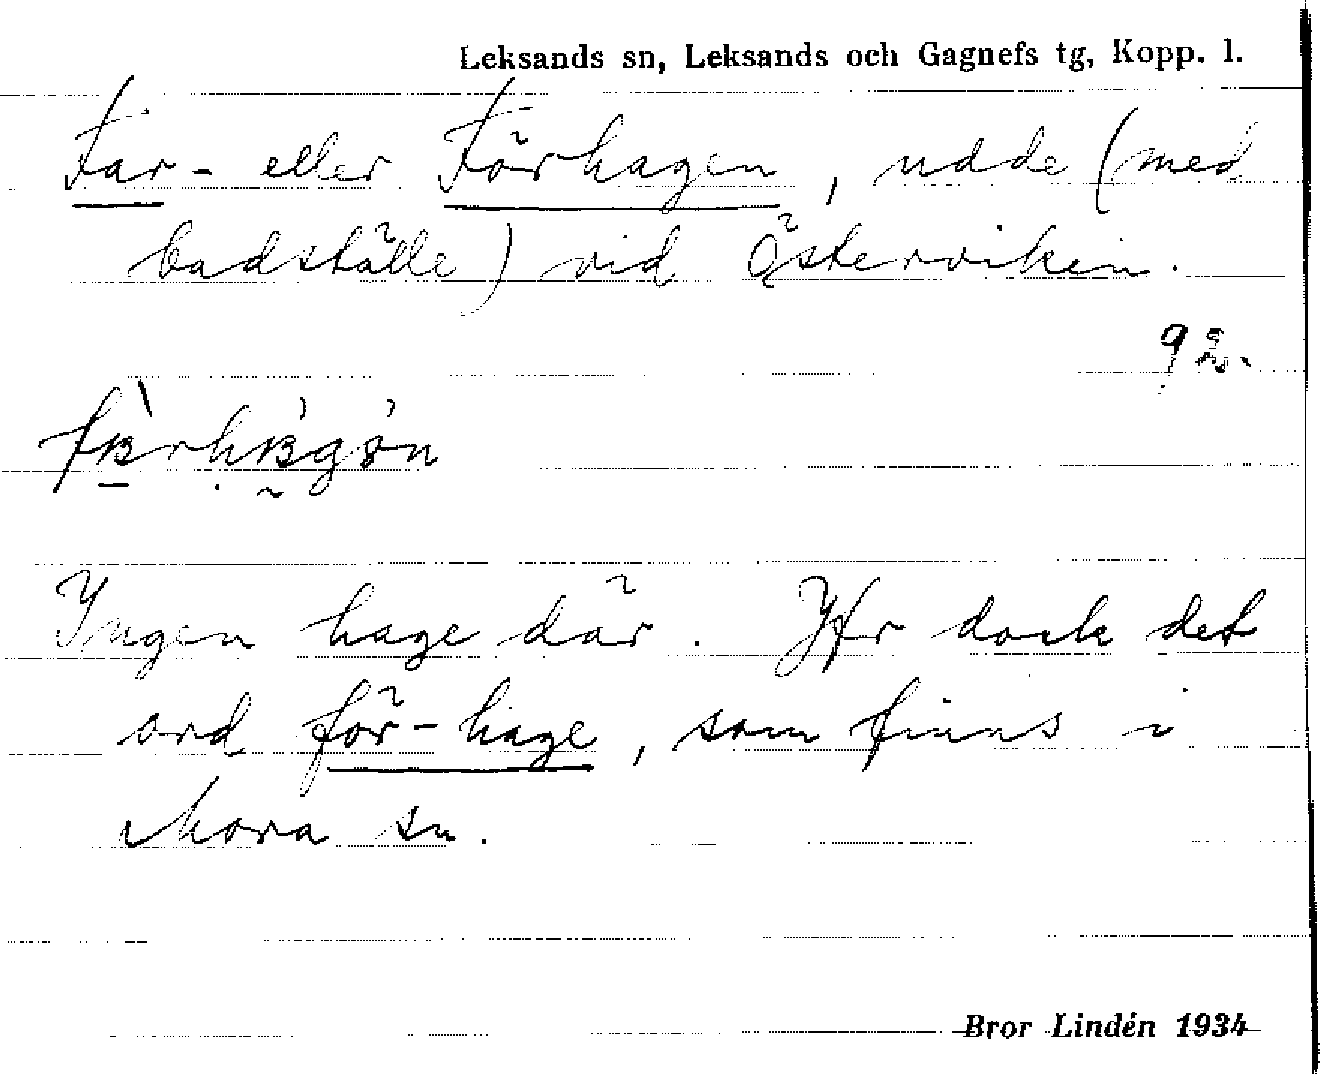 Leksands sn, Leksands och Gagnefs tg, Kopp. l.
Far- eller Förhagen, udde (med
badställe) vid Österviken.
Ingen hage där. Jfr dock det
ord för-hage, som finns i
Mora sn.
Bror Lindén 1934